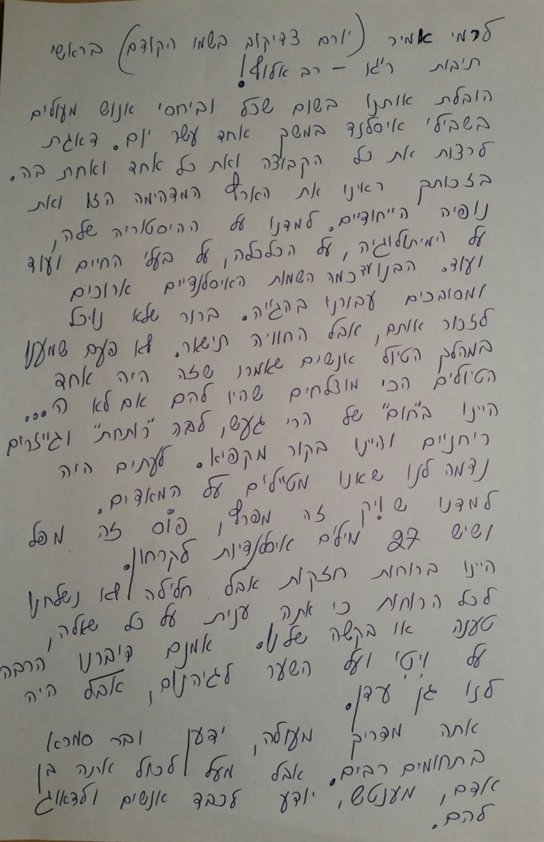 לרמי אמיר (יורם צדיקוב בשמו הקודם) בראשי
תיבות ר"גו – רב אלוף!
הובלת אותנו בשום שכל וביחסי אנוש מעולים
בשבילי איסלנד במשך אחד עשר יום. דאגת
לרצות את כל הקבוצה ואת כל אחד ואחת בה.
בזכותך ראינו את הארץ המדהימה הזו ואת
נופיה הייחודיים. למדנו על ההיסטוריה שלה,
על המיתולוגיה, על הכלכלה, על בעלי החיים ועוד
ועוד. הבנו עד כמה השמות האיסלנדיים ארוכים
ומסובכים עבורנו בהגייה. ברור שלא נוכל
לזכור אותם, אבל החוויה תישאר. לא פעם שמענו
במהלך הטיול אנשים שאמרו שזה היה אחד
הטיולים הכי מוצלחים שהיו להם אם לא ה...
היינו ב"חום" של הרי געש, לבה "רותחת" וגייזרים
ריחניים והיינו בקור מקפיא. לעתים היה
נדמה לנו שאנו מטיילים על המאדים.
למדנו שויק זה מפרץ, פוס זה מפל
ושיש 27 מילים איסלנדיות לקרחון.
היינו ברוחות חזקות אבל חלילה לא נשלחנו
לכל הרוחות כי אתה ענית על כל שאלה,
טענה או בקשה שלנו. אמנם דיברנו הרבה
על ויטי ועל השער לגיהנום, אבל היה
לנו גן עדן.
אתה מדריך מעולה, ידען ובר סמכא
בתחומים רבים. אבל מעל לכול אתה בן
אדם, מענטש, יודע לכבד אנשים ולדאוג
להם.